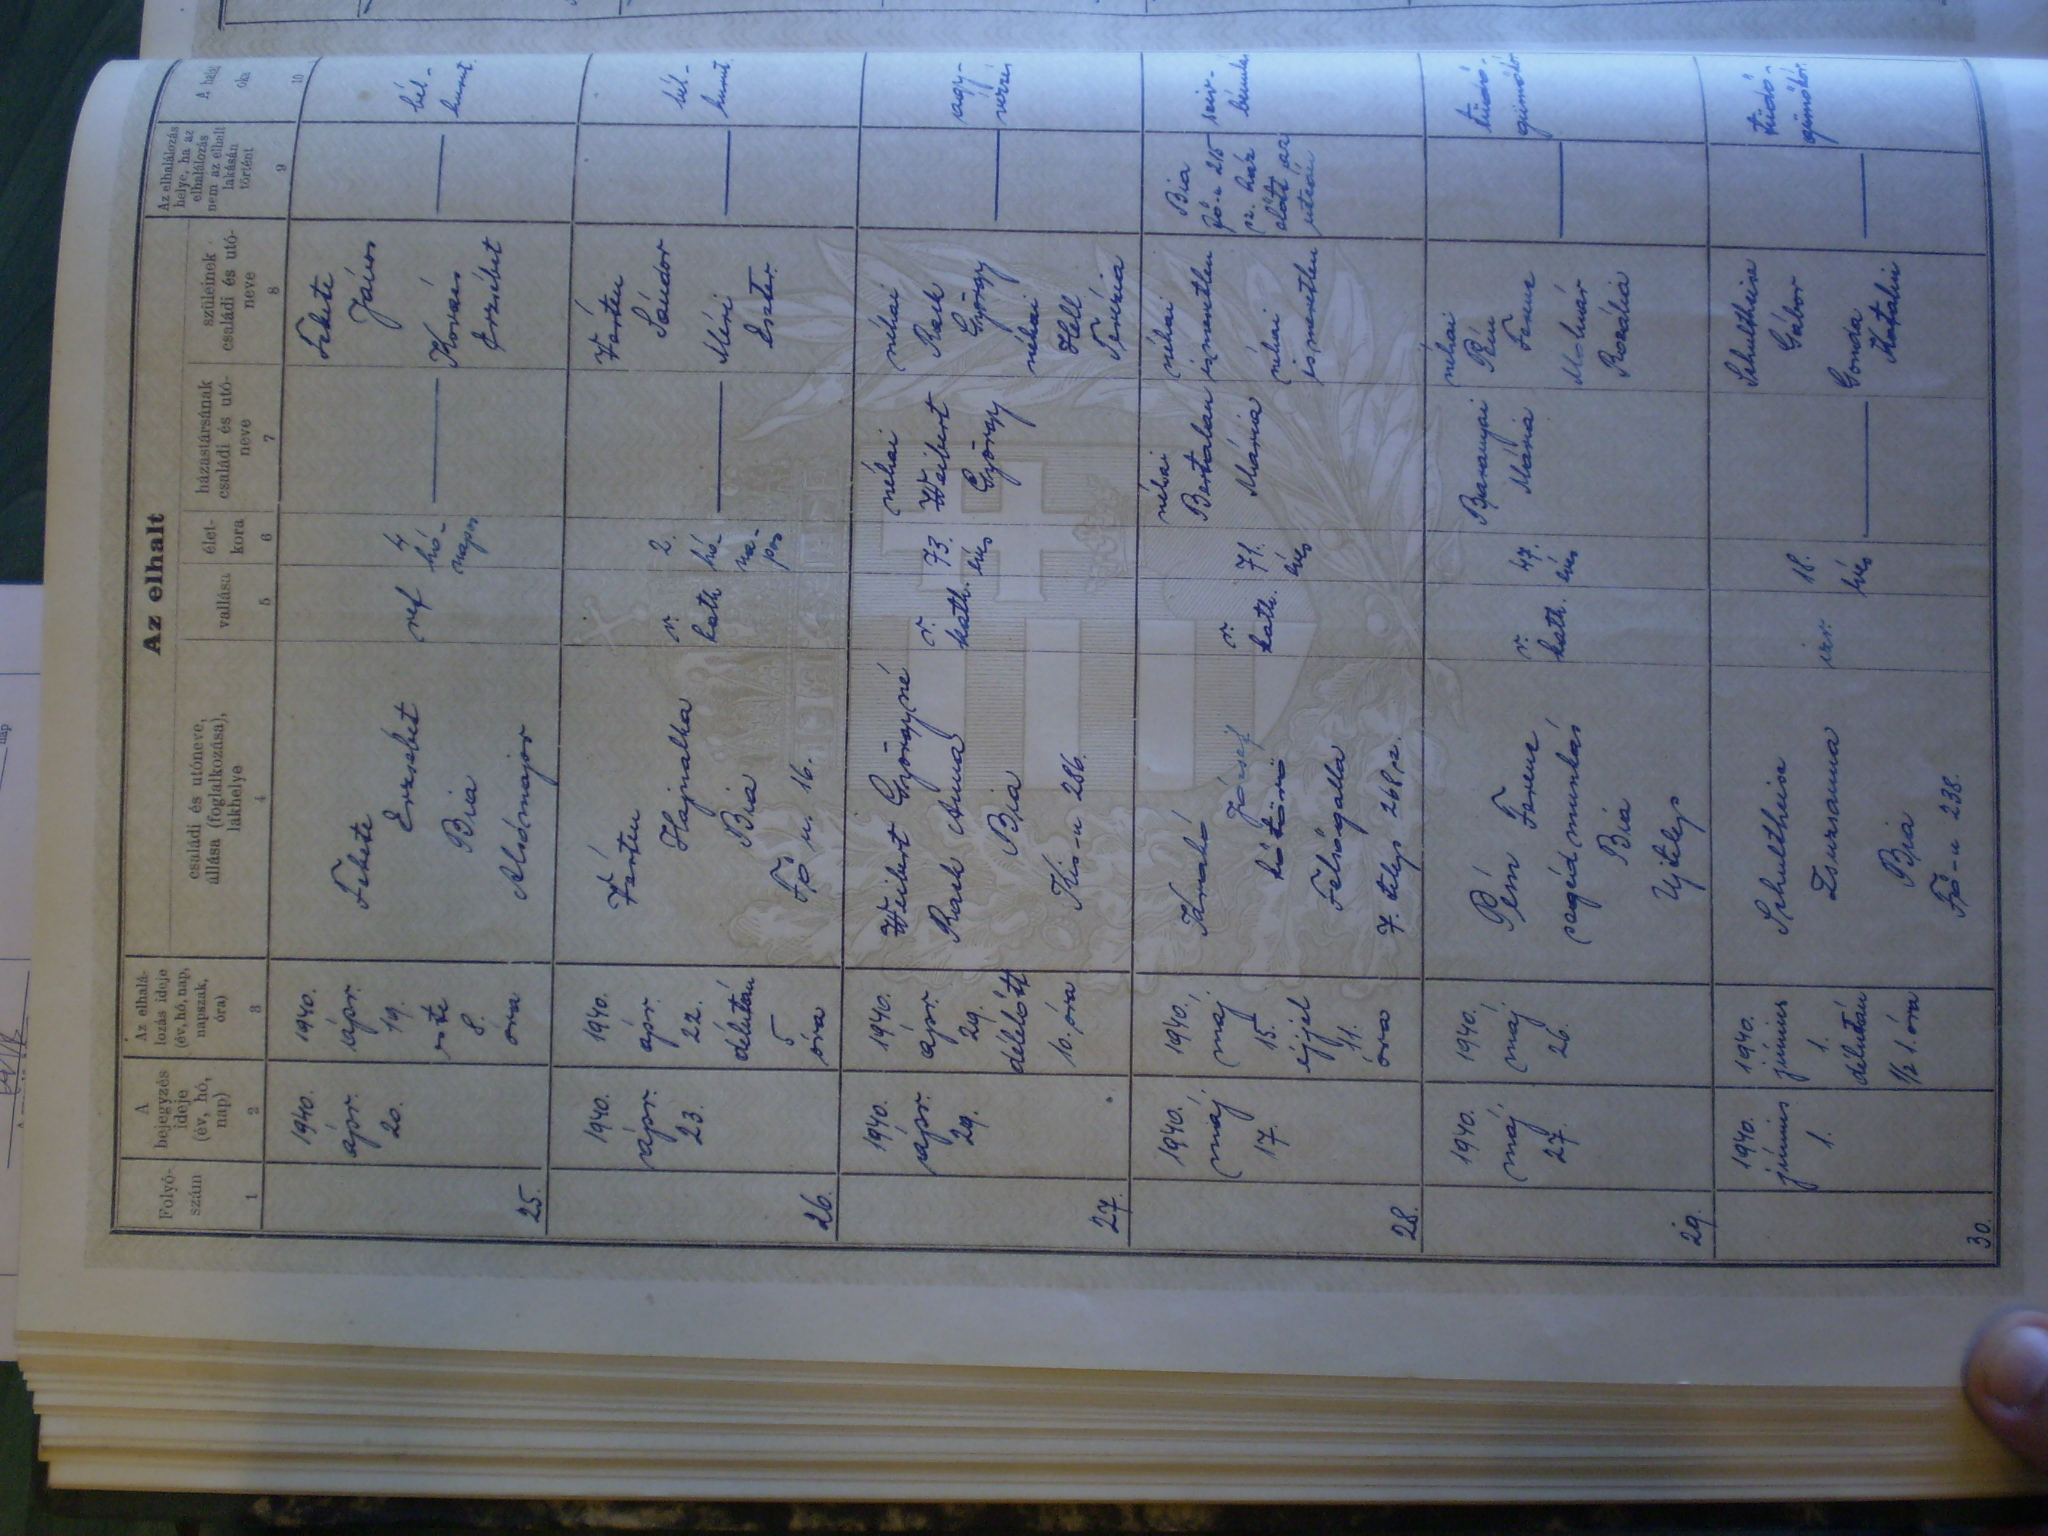 Az elhalt
Folyó-
szám
A
bejegyzés
ideje
(év, hó,
nap)
Az elhalá-
lozás ideje
(év, hó, nap,
napszak,
óra)
családi és utóneve,
állása (foglalkozása),
lakhelye
vallása
élet-
kora
házastársának
családi és utó-
neve
szüleinek
családi és utó-
neve
Az elhalálozás
helye, ha az
elhalálozás
nem az elhalt
lakásán
történt
A halál
oka
1
2
3
4
5
6
7
8
9
10
25.
1940.
ápr.
20.
1940.
ápr.
19.
este
8.
óra
Fekete
Erzsébet
Bia
Alsómajor
ref
4
hó-
napos
Fekete
János
Kovács
Erzsébet
bél-
hurut
26.
1940.
ápr.
23.
1940.
ápr.
22.
délután
5
óra
Hajnalka
Bia
Fő u. 16.
r.
kath
2.
hó-
na-
pos
Sándor
Eszter
bél-
hurut
27.
1940.
ápr.
29.
1940.
ápr.
29.
délelőtt
10. óra
Weibert Györgyné
Rack Anna
Bia
Kis-u 286.
r.
kath.
73.
éves
néhai
Weibert
György
néhai
Rack
György
néhai
Hell
Terézia
agy-
vérzés
28.
1940.
máj.
17.
1940.
máj.
15.
éjjel
11.
óra
József
kőtörő
Felsőgalla
7. telep 268 sz.
r.
kath.
71.
éves
néhai
Bertalan
Mária
néhai
ismeretlen
néhai
ismeretlen
Bia
Fő-u 215
sz. ház
előtt az
utcán
szív-
bénulás
29.
1940.
máj.
27.
1940.
máj.
26.
Pém Ferenc
segédmunkás
Bia
Ujtelep
r.
kath.
47.
éves
Baranyai
Mária
néhai
Pém
Ferenc
Molnár
Rozália
tüdő-
gümőkór
30.
1940.
június
1.
1940.
június
1.
délután
1/2 1. óra
Schultheisz
Zsuzsanna
Bia
Fő-u 238.
18.
éves
Schultheisz
Gábor
Gonda
Katalin
tüdő-
gümőkór